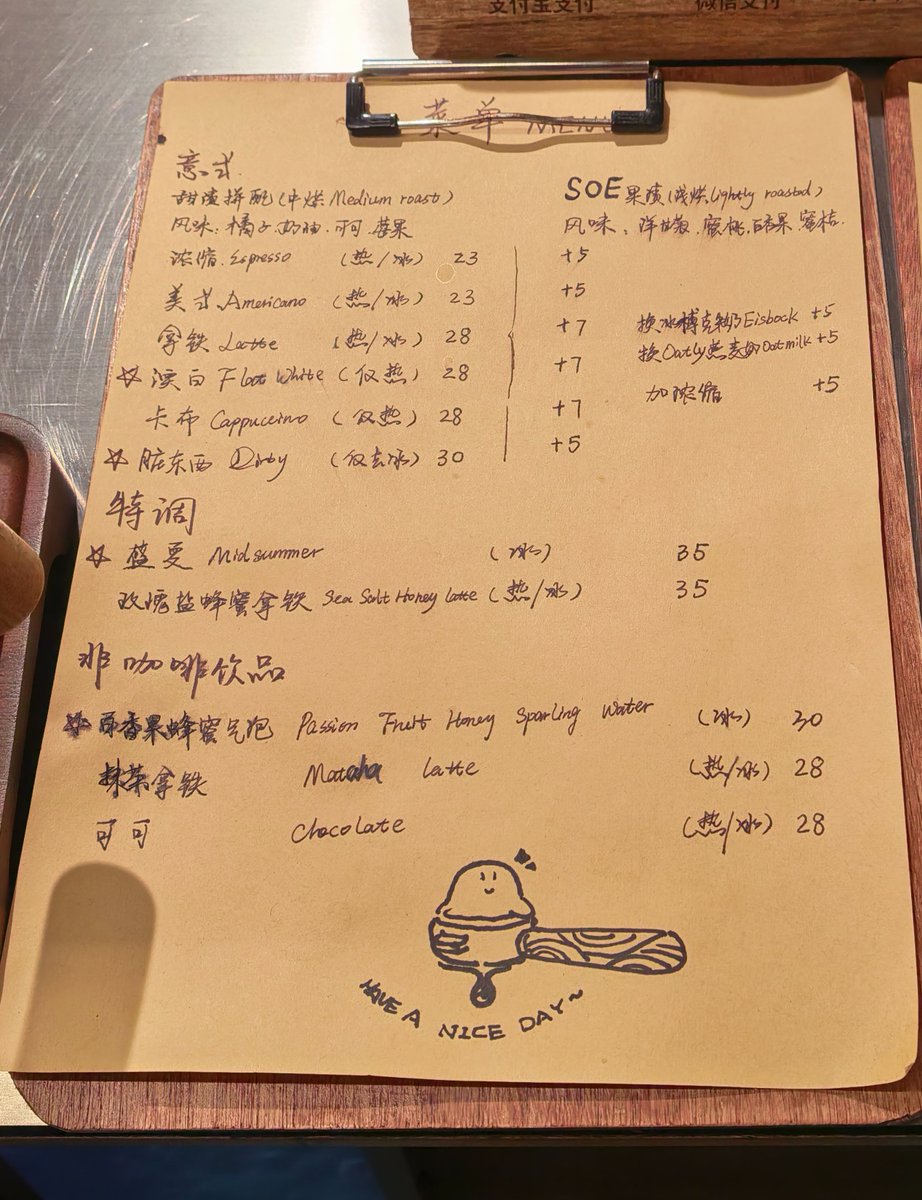 支付宝支付 微信支付
菜单 MENU
意式
甜渍拼配（中烘 Medium roast）
风味：橘子.奶油.可可.莓果
SOE 果渍（浅烘 Lightly roasted）
风味：洋甘菊.蜜桃.百香果.蜜桔.
浓缩.Espresso （热/冰） 23 +5
美式.Americano （热/冰） 23 +5
拿铁 Latte （热/冰） 28 +7
☆ 澳白 Flat White （仅热） 28 +7
卡布 Cappuccino （仅热） 28 +7
☆ 脏东西 Dirty （仅去冰） 30 +5
换冰博克牛奶 Eisbock +5
换Oatly燕麦奶 Oat milk +5
加浓缩 +5
特调
☆ 盛夏 Midsummer （冰） 35
玫瑰盐蜂蜜拿铁 Sea Salt Honey latte （热/冰） 35
非咖啡饮品
☆ 百香果蜂蜜气泡 Passion Fruit Honey Sparling Water （冰） 30
抹茶拿铁 Matcha latte （热/冰） 28
可可 Chocolate （热/冰） 28
HAVE A NICE DAY~